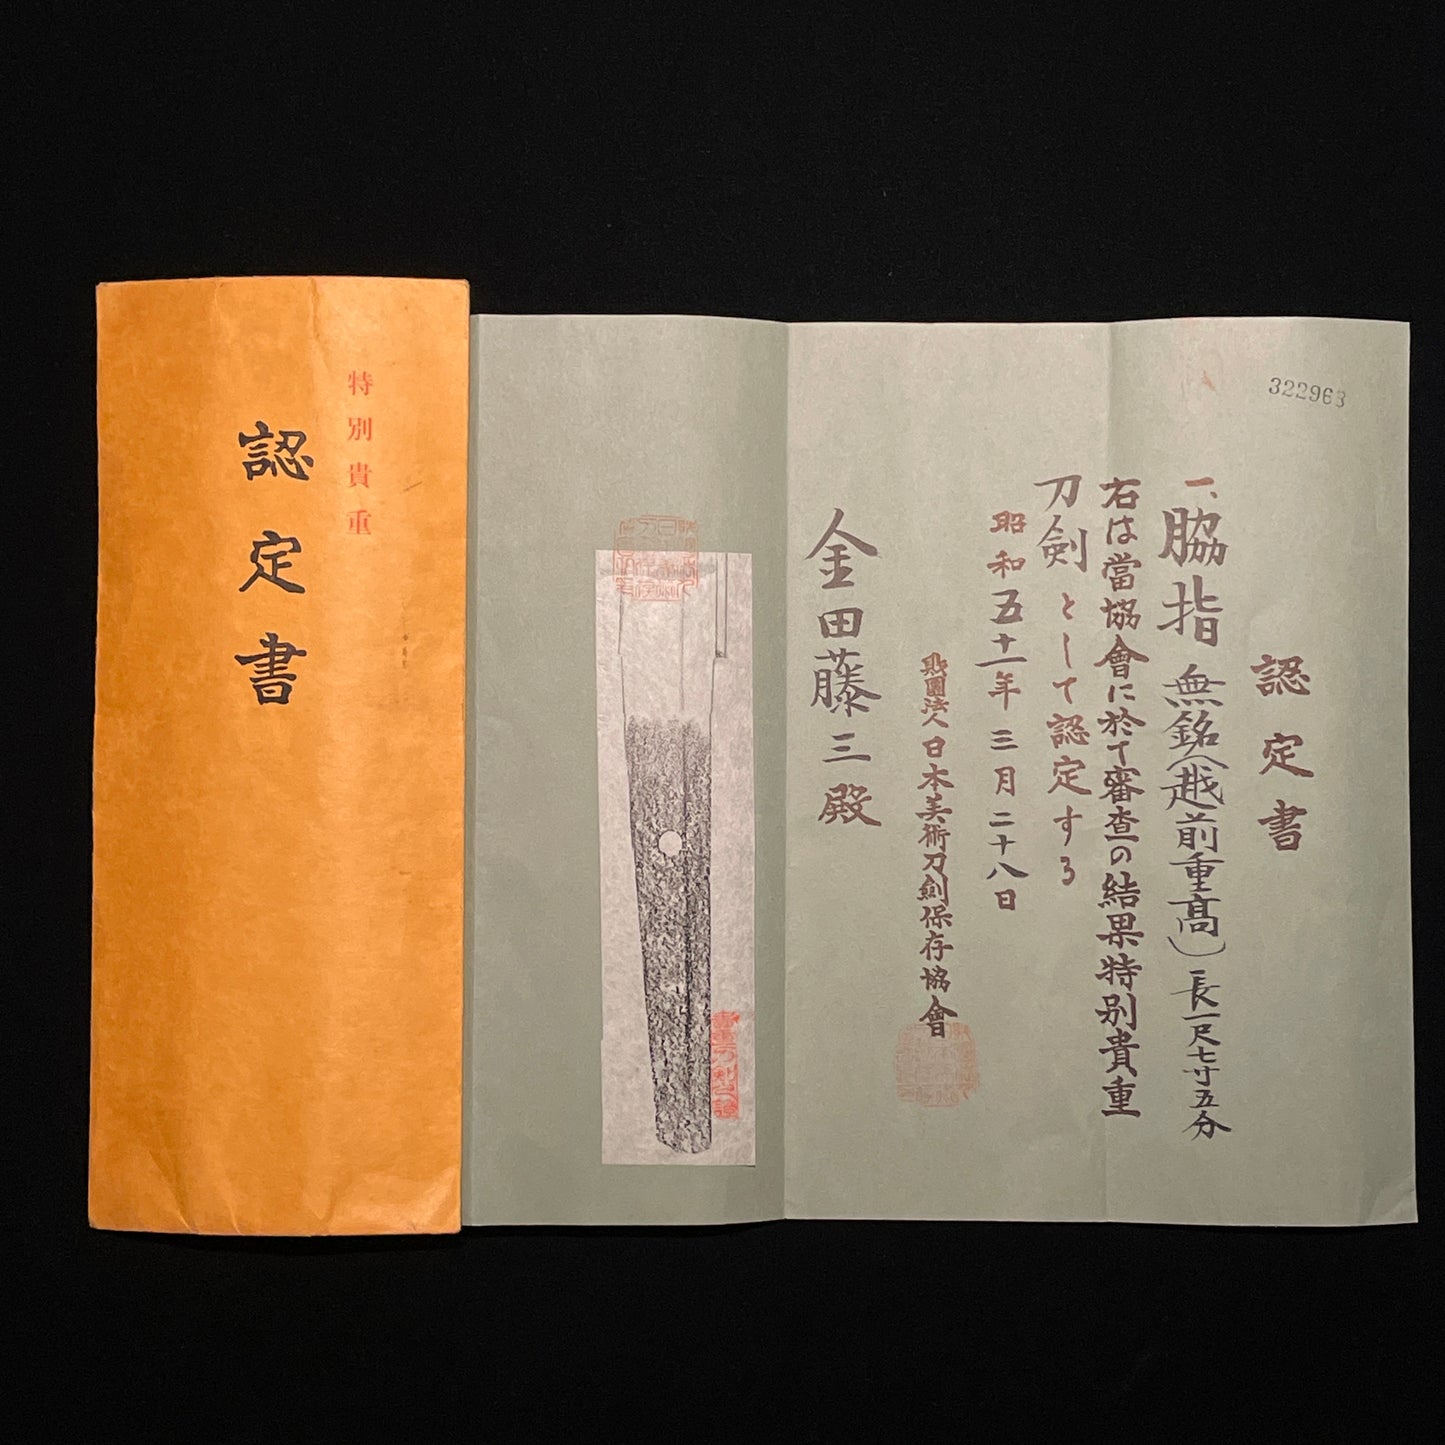 特別貴重
認定書
322963
認定書
一、脇指 無銘(越前重高) 長一尺七寸五分
右は當協會に於て審査の結果特別貴重
刀剣として認定する
昭和五十一年三月二十八日
財團法人日本美術刀剣保存協會
金田藤三殿